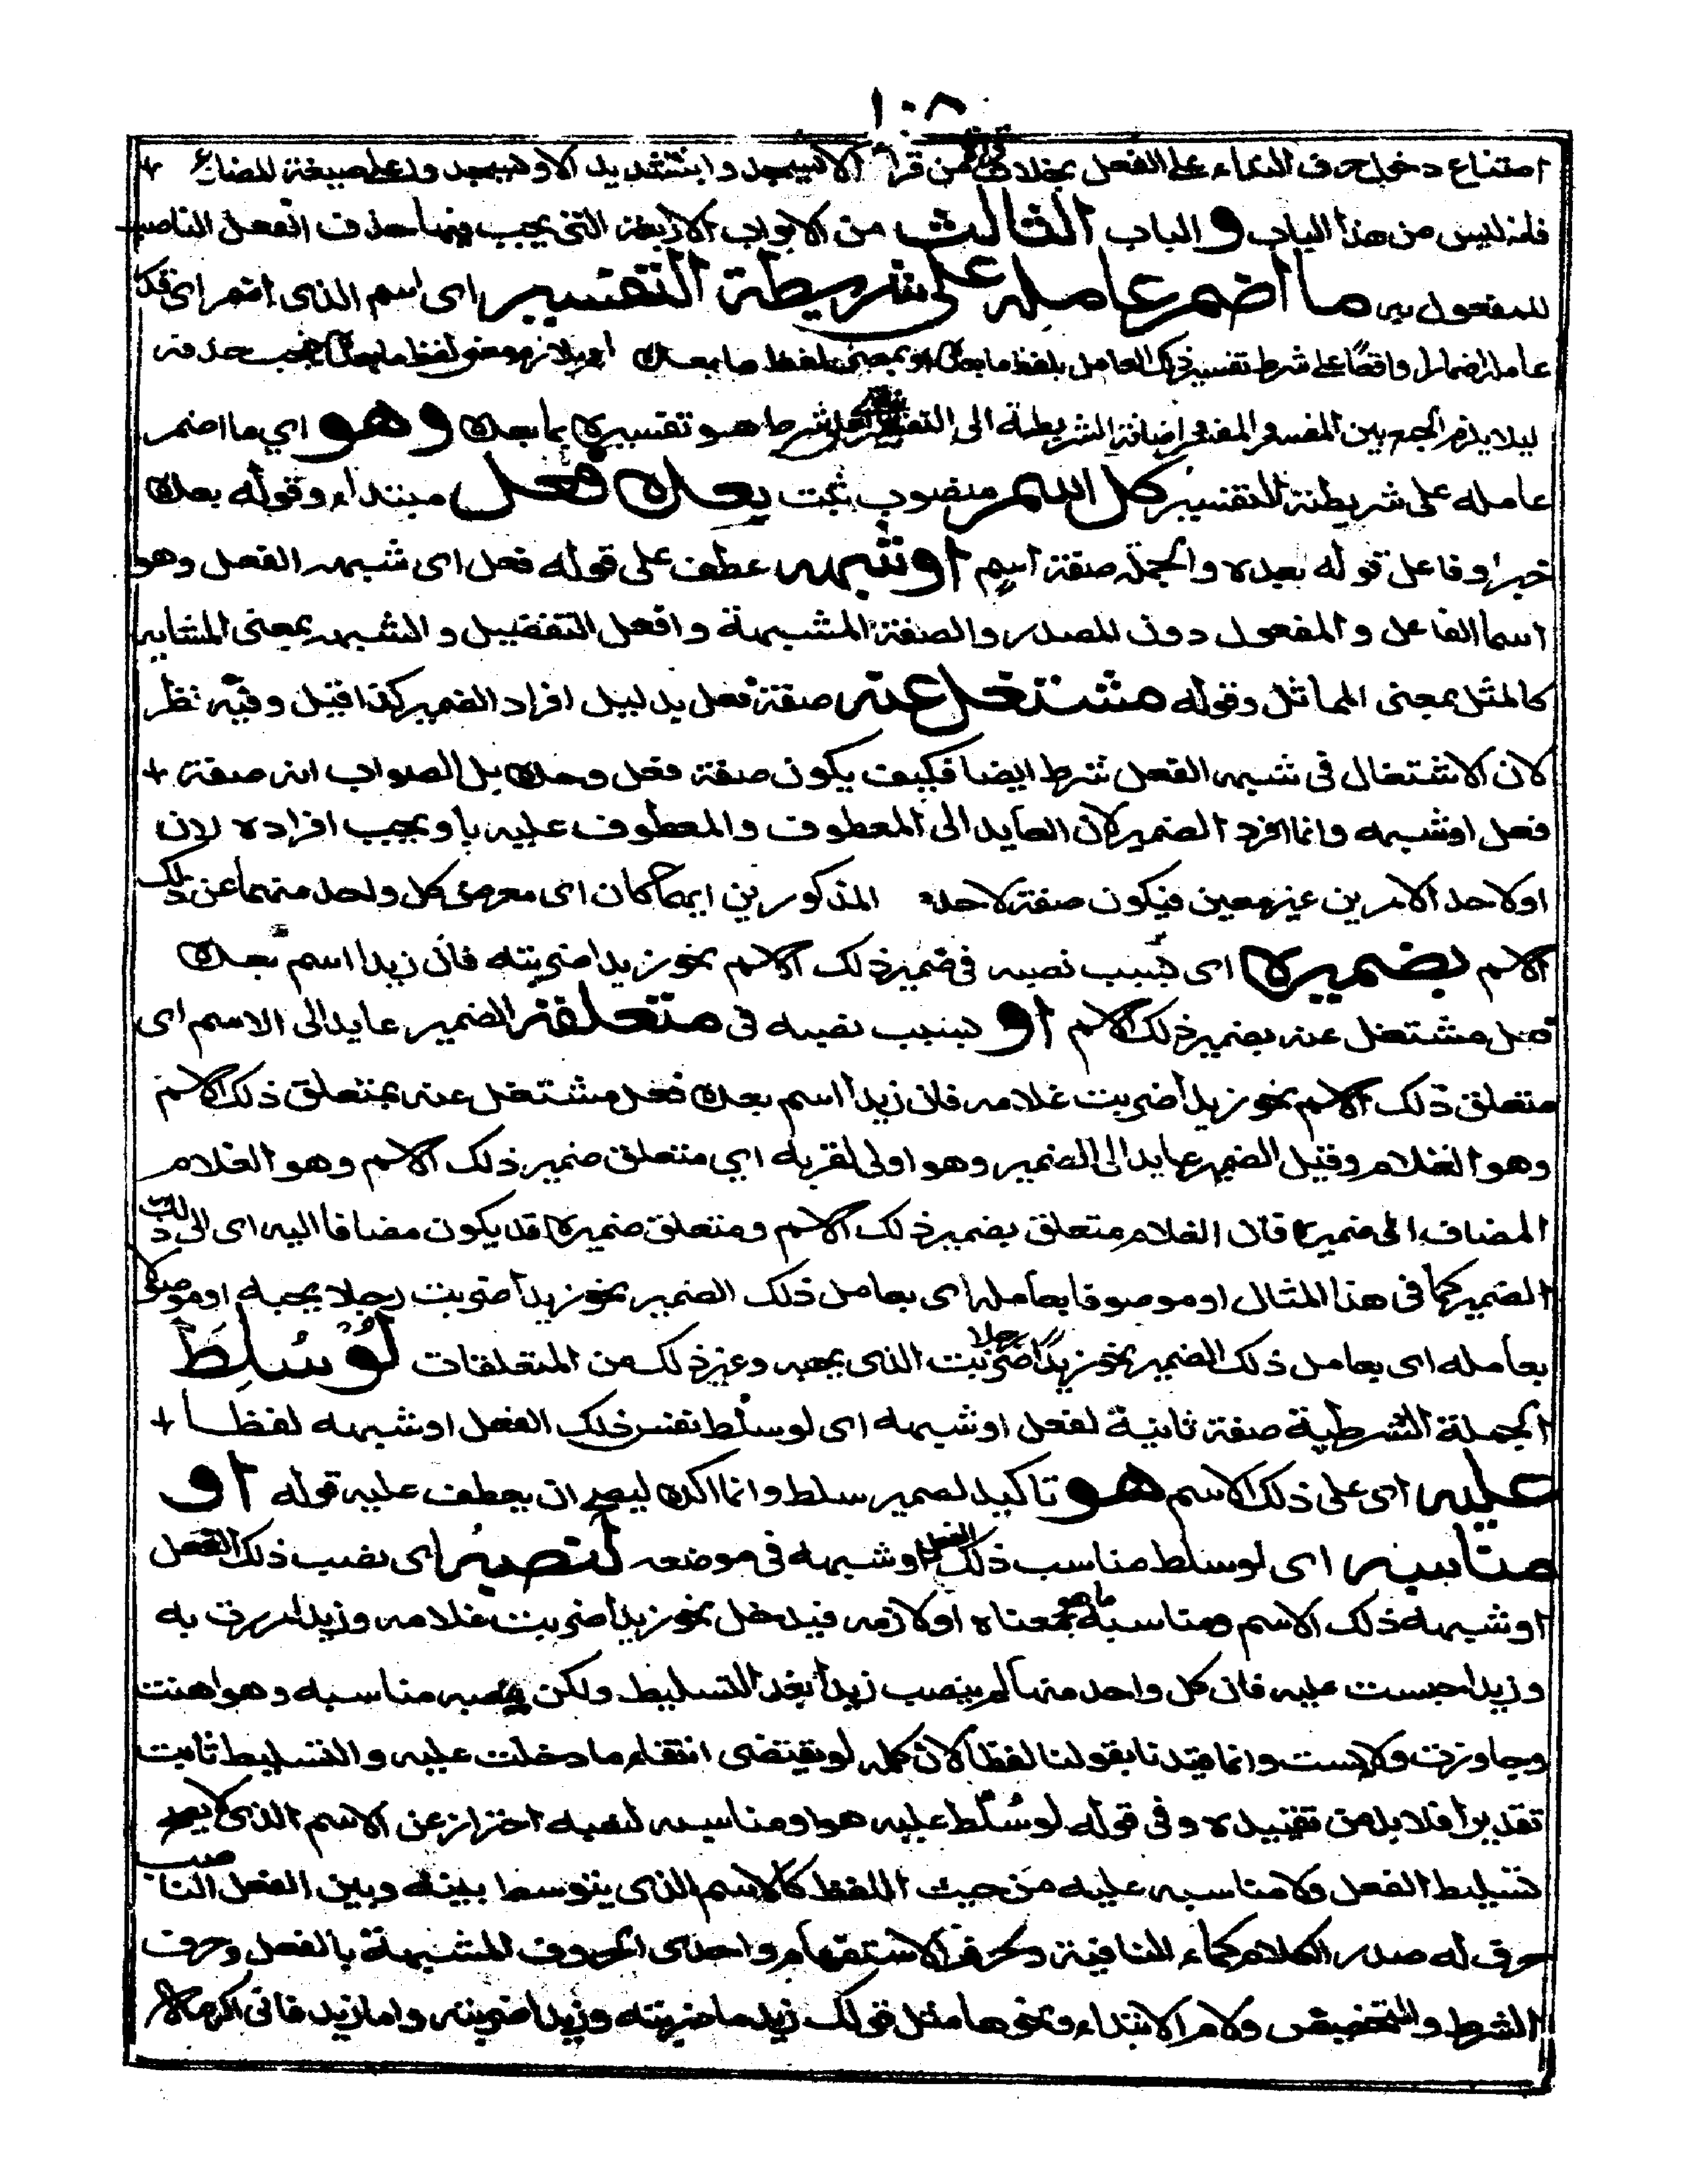 ١٠٨
امتناع دخول حرف النداء على الفعل بخلاف من قرأ الا يسجدوا بتشديد الا ويسجدوا على صيغة المضارع
فانه ليس من هذا الباب و الباب الثالث من الابواب الاربعة التى يجب فيها حذف الفعل الناصب
للمفعول به ما اضمر عامله على شريطة التفسير اى اسم الذى اضمر اى قدر
عامله اضمارا واقعًا على شرط تفسير ذلك العامل بلفظ ما بعده او بمعنى لفظ ما بعده او بلازم معنى لفظ ما بعده يجب حذفه
ليلا يلزم الجمع بين المفسر و المفسر اضافة الشريطة الى التفسير شرط هو تفسيره بما بعده وهو اي ما اضمر
عامله على شريطة التفسير كل اسم منصوب بحت بعده فعل مبتداء وقوله بعده
خبرا وفاعل قوله بعده والجملة صفة اسم او شبهه عطف على قوله فعل اى شبيه الفعل وهو
اسما الفاعل و المفعول دون المصدر والصفة المشبهة وافعل التفضيل و الشبه بمعنى المشابه
كالمثل بمعنى المماثل وقوله مشتغل عنه صفة فعل بدليل افراد الضمير كذا قيل وفيه نظر
لان الاشتغال فى شبه الفعل شرط ايضا فكيف يكون صفة فعل وحده بل الصواب انه صفة
فعل او شبهه وانما افرد الضمير لان العايد الى المعطوف والمعطوف عليه باو يجب افراده لان
او لاحد الامرين غير معين فيكون صفة لاحد المذكورين ايهما كان اى معرض كل واحد منهما عن ذلك
الاسم بضميره اى بسبب نصبه فى ضمير ذلك الاسم نحو زيدا ضربته فان زيدا اسم بعده
فعل مشتغل عنه بضمير ذلك الاسم او بسبب نصبه فى متعلقه الضمير عايد الى الاسم اى
متعلق ذلك الاسم نحو زيدا ضربت غلامه فان زيدا اسم بعده فعل مشتغل عنه بمتعلق ذلك الاسم
وهو الغلام وقيل الضمير عايد الى الضمير وهو اولى لقربه اي متعلق ضمير ذلك الاسم وهو الغلام
المضاف الى ضميره فان الغلام متعلق بضمير ذلك الاسم ومتعلق ضميره قد يكون مضافا اليه اى الى ذلك
الضمير كما فى هذا المثال او موصوفا بعامله اى بعامل ذلك الضمير نحو زيدا ضربت رجلا يحبه او موصولا
بعامله اى بعامل ذلك الضمير نحو زيدًا ضربت رجلا الذى يحبه وغير ذلك من المتعلقات لَوْ سُلِّطَ
الجملة الشرطية صفة ثانية لفعل او شبهه اى لو سلط نفس ذلك الفعل او شبهه لفظا
عليه اى على ذلك الاسم هو تاكيد لضمير سلط وانما اكده ليصح ان يعطف عليه قوله او
مناسبه اى لو سلط مناسب ذلك الفعل او شبهه فى موضعه لنصبه اى نصب ذلك الفعل
او شبهه ذلك الاسم ومناسبه ما هو بمعناه او لازمه فيدخل نحو زيدا ضربت غلامه وزيدا مررت به
وزيدا حبست عليه فان كل واحد منها لم ينصب زيدا بعد التسليط ولكن ينصبه مناسبه وهو اهنت
وجاوزت ولابست وانما قيدنا بقولنا لفظا لان كلمه لو يقتضى انتفاء ما دخلت عليه و التسليط ثابت
تقديرا فلا بد من تقييده و فى قوله لو سُلِّط عليه هو او مناسبه لنصبه احتراز عن الاسم الذى لا يصح
تسليط الفعل ولا مناسبه عليه من حيث اللفظ كالاسم الذى يتوسط بينه وبين الفعل الناصب
حرف له صدر الكلام كماء النافية وكحرف الاستفهام واحدى الحروف المشبهة بالفعل وحرف
الشرط و التحضيض ولام الابتداء ونحوها مثل قولك زيد ما ضربته وزيدا ضربته واما زيد فانى اكرمه الا